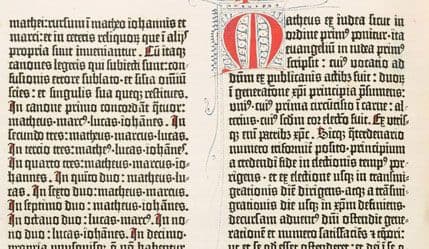 matheo: rursum ī matheo iohannis et
marci: et in ceteris reliquoꝝ que ī alijs
propria sunt inveniantur. Cū itaqꝫ
canones legeris qui subiecti sunt: con-
fusionis errore sublato: et silia omniū
scies: et singulis sua queqꝫ restitues.
In canone primo concordāt q̄tuor:
matheus·marcꝰ·lucas·iohānes. In
secundo tres: matheus·marcus·lucas.
In tercio tres: matheꝰ·lucas·iohānes.
In quarto tres: matheus·marcus·io-
hannes. In quīto duo: matheus·lucas.
In sexto duo: matheus·marcus.
In septimo duo: matheus·iohannes.
In octavo duo: lucas·marcꝰ. In no-
no duo: lucas·iohannes. In decimo:
Matheus ex iudea sicut in
ordine primꝰ ponitur: ita
euangeliū in iudea primꝰ
scripsit: cuiꝰ vocatio ad
deū ex publicanis actibꝫ fuit: duoꝝ
ī generatione xpī principia p̄sumens:
vniꝰ cuiꝰ prima circūcisio ī carne: al-
teriꝰ cuiꝰ scdm cor electio fuit. Ex utrisqꝫ
enī patribꝫ xpc. Sicqꝫ q̄ternario
numero triformit̄ posito: principiū
a credendi fide in electionis tempꝰ por-
rigens: et ex electiōe usqꝫ in transmi-
grationis diē dirigens: atqꝫ a transmi-
grationis die usqꝫ in xpm definiens:
decursam aduentꝰ dn̄i ostendit gene-
rationē: et numero satisfaciēs et